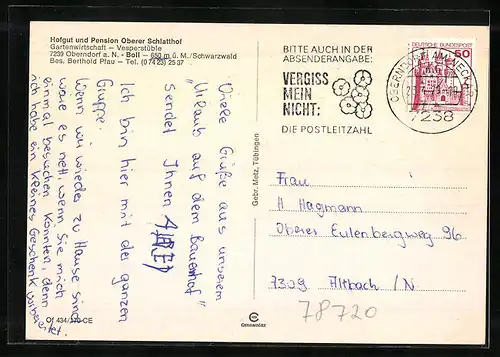 Hofgut und Pension Oberer Schlatthof
Gartenwirtschaft – Vesperstüble
7239 Oberndorf a. N. - Boll – 650 m ü. M./Schwarzwald
Bes. Berthold Pfau – Tel. (0 74 23) 25 37
Viele Grüße aus unserem
"Urlaub auf dem Bauernhof"
sendet Ihnen
Ich bin hier mit der ganzen
Gruppe.
Wenn wir wieder zu Hause sind
wäre es nett, wenn Sie mich
einmal besuchen könnten, denn
ich habe ein kleines Geschenk vorbereitet.
Of 434/370 CE
Gebr. Metz, Tübingen
BITTE AUCH IN DER
ABSENDERANGABE:
VERGISS
MEIN
NICHT:
DIE POSTLEITZAHL
OBERNDORF AM NECKAR
7238
DEUTSCHE BUNDESPOST
50
Frau
H Hagmann
Oberer Eulenbergweg 96
7309 Altbach /N
78720